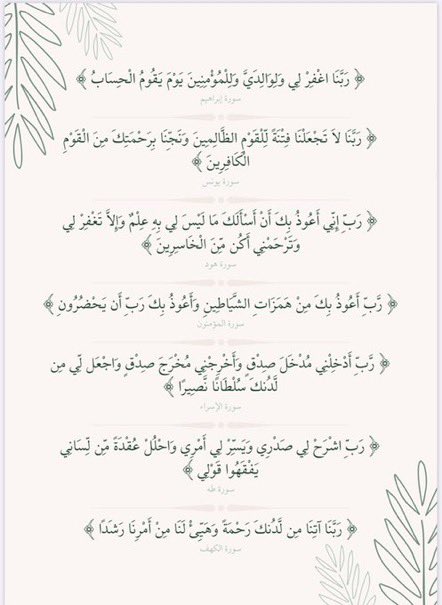 ﴿ رَبَّنَا اغْفِرْ لِي وَلِوَالِدَيَّ وَلِلْمُؤْمِنِينَ يَوْمَ يَقُومُ الْحِسَابُ ﴾
سورة إبراهيم
﴿ رَبَّنَا لاَ تَجْعَلْنَا فِتْنَةً لِّلْقَوْمِ الظَّالِمِينَ وَنَجِّنَا بِرَحْمَتِكَ مِنَ الْقَوْمِ
الْكَافِرِينَ ﴾
سورة يونس
﴿ رَبِّ إِنِّي أَعُوذُ بِكَ أَنْ أَسْأَلَكَ مَا لَيْسَ لِي بِهِ عِلْمٌ وَإِلاَّ تَغْفِرْ لِي
وَتَرْحَمْنِي أَكُن مِّنَ الْخَاسِرِينَ ﴾
سورة هود
﴿ رَّبِّ أَعُوذُ بِكَ مِنْ هَمَزَاتِ الشَّيَاطِينِ وَأَعُوذُ بِكَ رَبِّ أَن يَحْضُرُونِ ﴾
سورة المؤمنون
﴿ رَّبِّ أَدْخِلْنِي مُدْخَلَ صِدْقٍ وَأَخْرِجْنِي مُخْرَجَ صِدْقٍ وَاجْعَل لِّي مِن
لَّدُنكَ سُلْطَانًا نَّصِيرًا ﴾
سورة الإسراء
﴿ رَبِّ اشْرَحْ لِي صَدْرِي وَيَسِّرْ لِي أَمْرِي وَاحْلُلْ عُقْدَةً مِّن لِّسَانِي
يَفْقَهُوا قَوْلِي ﴾
سورة طه
﴿ رَبَّنَا آتِنَا مِن لَّدُنكَ رَحْمَةً وَهَيِّئْ لَنَا مِنْ أَمْرِنَا رَشَدًا ﴾
سورة الكهف